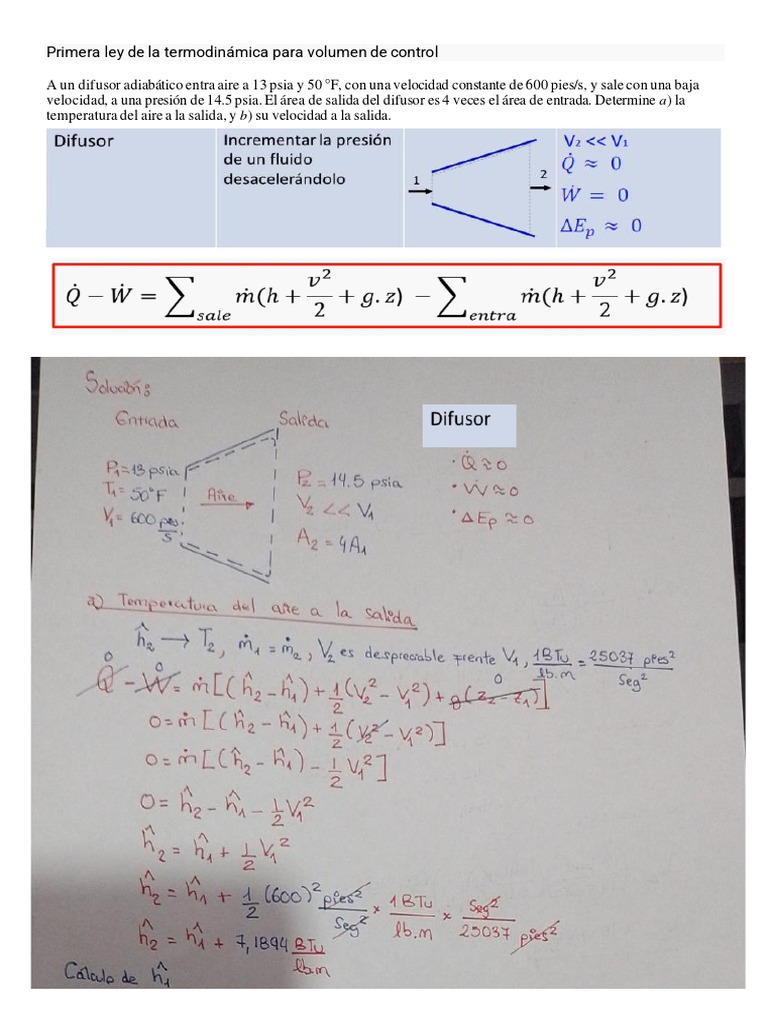 Primera ley de la termodinámica para volumen de control
A un difusor adiabático entra aire a 13 psia y 50 °F, con una velocidad constante de 600 pies/s, y sale con una baja
velocidad, a una presión de 14.5 psia. El área de salida del difusor es 4 veces el área de entrada. Determine a) la
temperatura del aire a la salida, y b) su velocidad a la salida.
Difusor
Incrementar la presión
de un fluido
desacelerándolo
1
2
V₂ << V₁
Q̇ ≈ 0
Ẇ = 0
ΔEₚ ≈ 0
Q̇ − Ẇ = ∑sale ṁ(h + v²/2 + g.z) − ∑entra ṁ(h + v²/2 + g.z)
Solución:
Entrada
Salida
Difusor
P₁ = 13 psia
T₁ = 50°F
V₁ = 600 pies/s
Aire
P₂ = 14.5 psia
V₂ << V₁
A₂ = 4A₁
· Q̇ ≈ 0
· Ẇ ≈ 0
· ΔEp ≈ 0
a) Temperatura del aire a la salida
ĥ₂ → T₂, ṁ₁ = ṁ₂, V₂ es despreciable frente V₁, 1BTu/lb.m = 25037 pies²/Seg²
0 0 0
Q̇ − Ẇ = ṁ[(ĥ₂ − ĥ₁) + 1/2(V₂² − V₁²) + g(Z₂ − Z₁)]
0 = ṁ[(ĥ₂ − ĥ₁) + 1/2(V₂² − V₁²)]
0 = ṁ[(ĥ₂ − ĥ₁) − 1/2 V₁²]
0 = ĥ₂ − ĥ₁ − 1/2 V₁²
ĥ₂ = ĥ₁ + 1/2 V₁²
ĥ₂ = ĥ₁ + 1/2 (600)² pies²/Seg² × 1BTu/lb.m × Seg²/25037 pies²
ĥ₂ = ĥ₁ + 7,1894 BTu/lb.m
Cálculo de ĥ₁